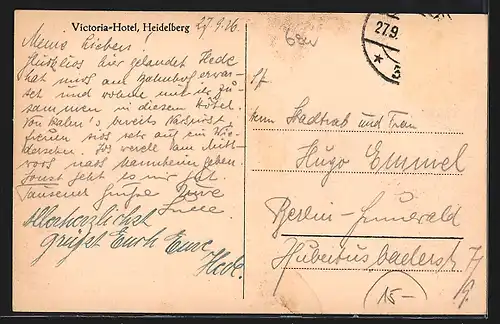 Victoria-Hotel, Heidelberg
27.9.26
Meine Lieben!
Glücklich hier gelandet Hede
hat mich am Bahnhof erwar-
tet und wohne mit ihr zu-
sammen in diesem Hotel.
Von Hahn's bereits Nachricht,
freuen sich sehr auf ein Wie-
dersehen. Ich werde am Mitt-
woch nach Mannheim gehen.
Sonst geht es mir gut.
Tausend Grüße
Allerherzlichst
grüßt Euch Eure
Hede.
27.9.
Herrn Stadtrat und Frau
Hugo Emmel
Berlin-Grunewald
Hubertusbaderstr
15-